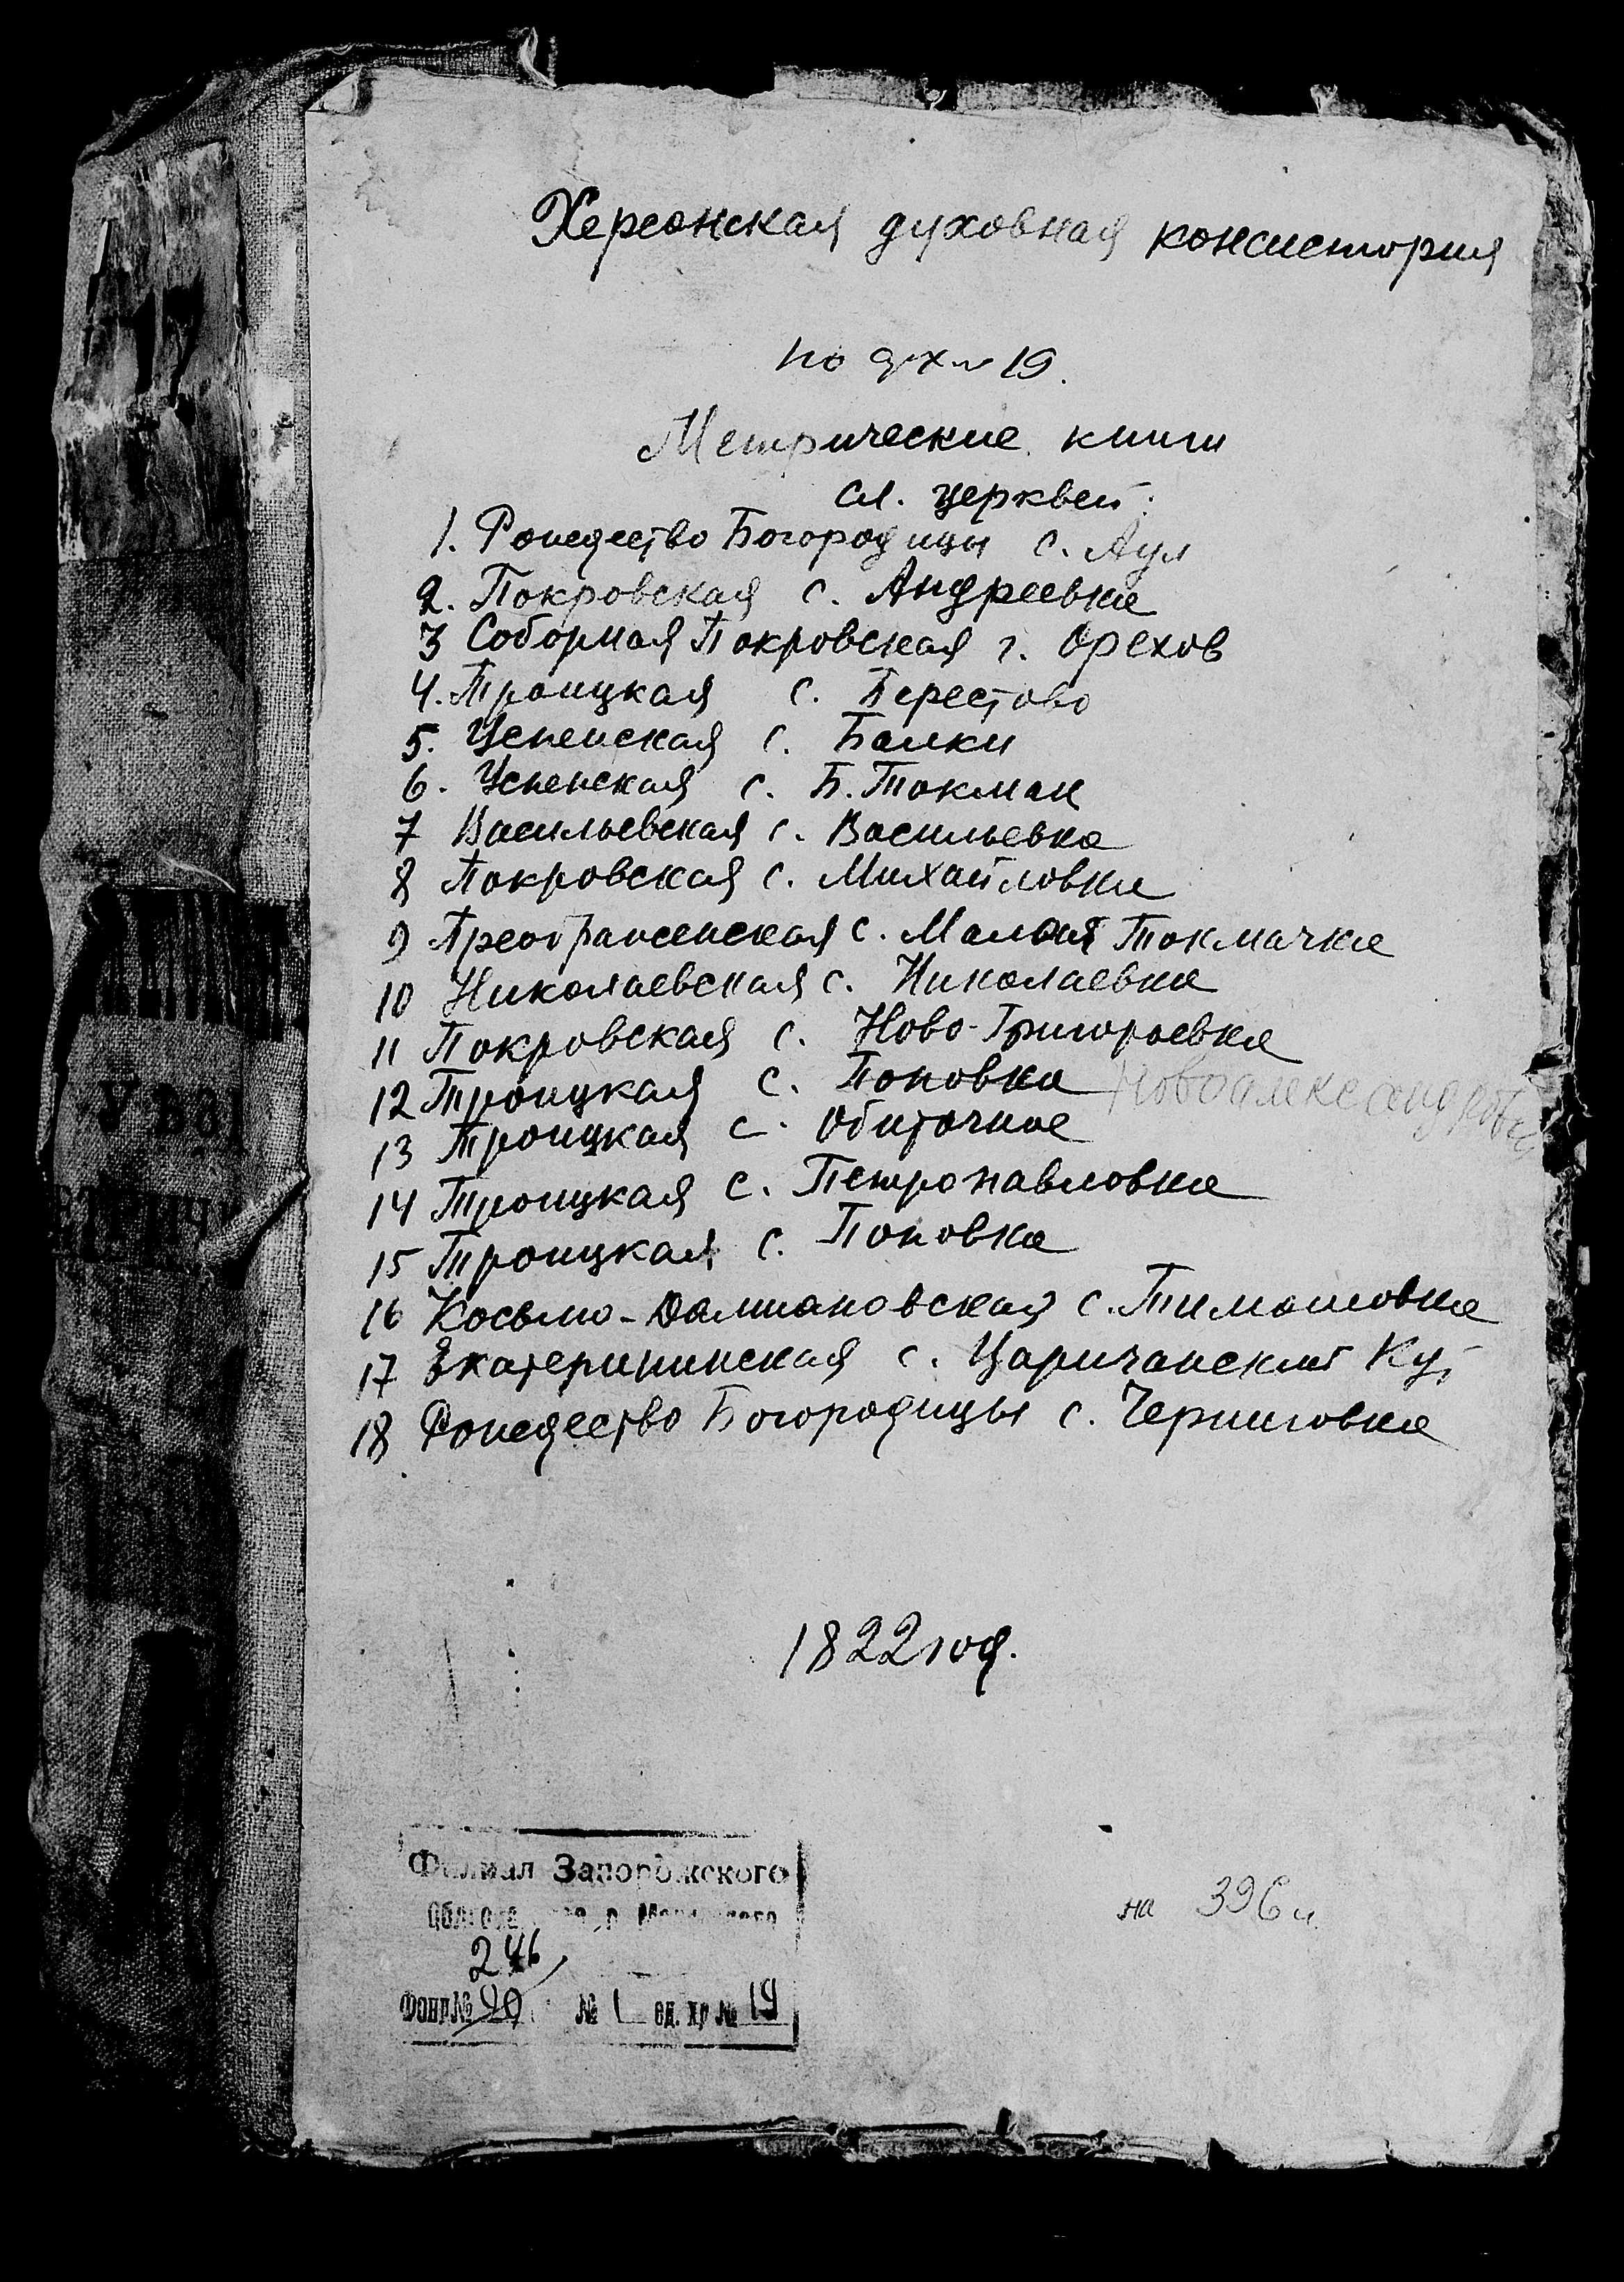 Херсонская духовная консистория
по 19.
Метрические книги
сл. церквей:
1. Рождество Богородицы с. Аул
2. Покровская с. Андреевка
3 Соборная Покровская г. Орехов
4. Троицкая с. Берестово
5. Успенская с. Балки
6. Успенская с. Б. Токмак
7 Васильевская с. Васильевка
8 Покровская с. Михайловка
9 Преображенская с. Малая Токмачка
10 Николаевская с. Николаевка
11 Покровская с. Ново-Григорьевка
12 Троицкая с. Поповка Новоалександровка
13 Троицкая с. Обиточное
14 Троицкая с. Петропавловка
15 Троицкая с. Поповка
16 Косьмо-Дамиановская с. Тимошовка
17 Екатерининская с. Царичанский Кут
18 Рождество Богородицы с. Черниговка
1822 год.
Филиал Запорожского
на 396 л
246
Фонд № 20 № 1 ед. хр № 19